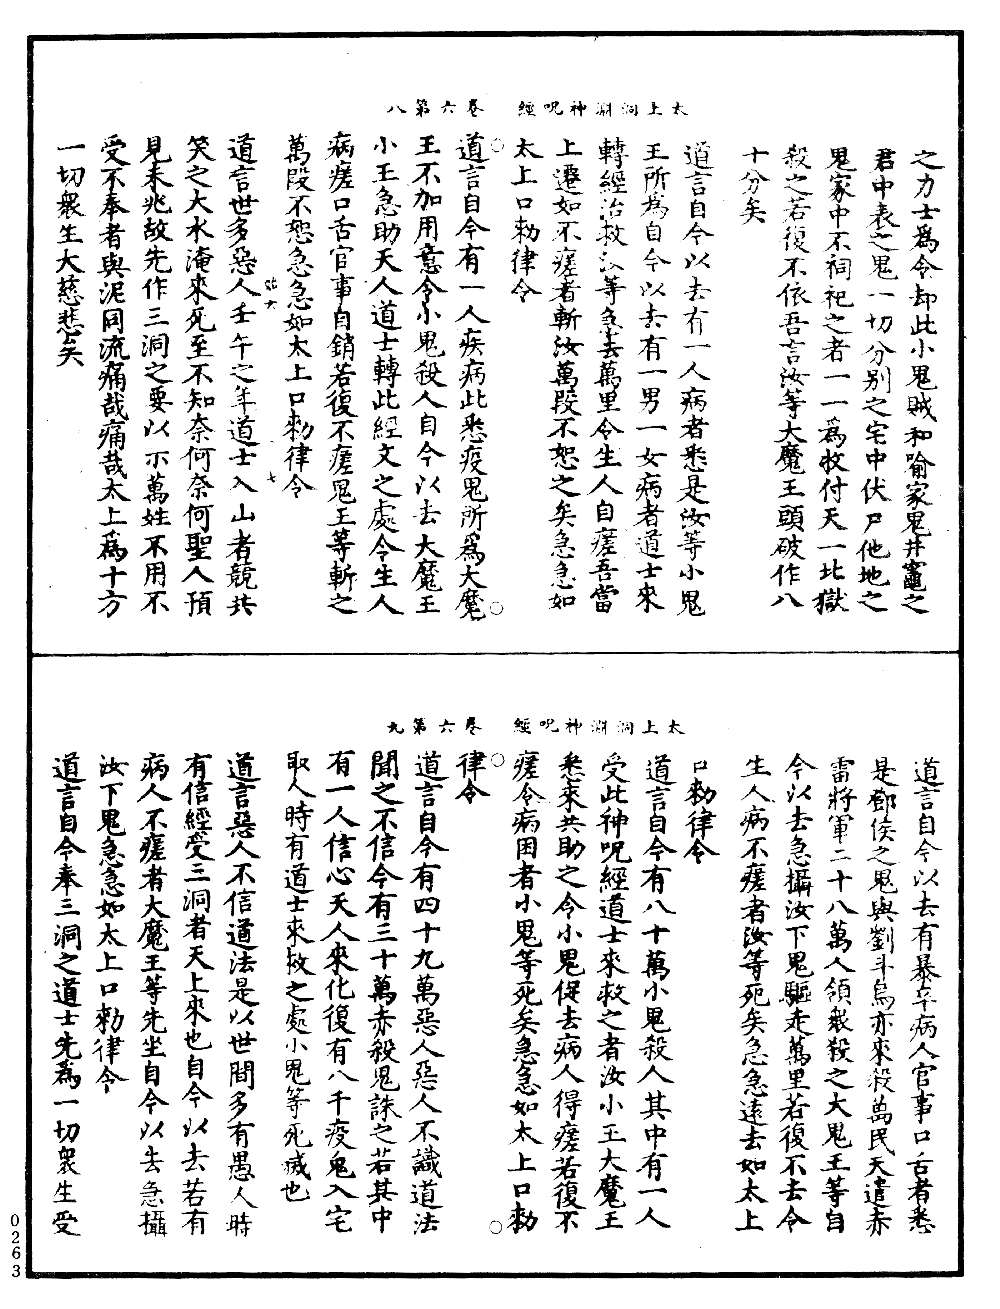 太上洞淵神呪經　卷六第八
之力士爲令却此小鬼賊和喻家鬼井竈之
君中表之鬼一切分別之宅中伏尸他地之
鬼家中不祠祀之者一一爲收付天一北獄
殺之若復不依吾言汝等大魔王頭破作八
十分矣
道言自今以去有一人病者悉是汝等小鬼
王所為自今以去有一男一女病者道士來
轉經治救汝等急去萬里令生人自瘥吾當
上遷如不瘥者斬汝萬段不恕之矣急急如
太上口勑律令
道言自今有一人疾病此悉疫鬼所爲大魔
王不加用意令小鬼殺人自今以去大魔王
小王急助天人道士轉此經文之處令生人
病瘥口舌官事自銷若復不瘥鬼王等斬之
萬段不恕急急如太上口勑律令
道言世多惡人壬午之年道士入山者競共
笑之大水淹來死至不知奈何奈何聖人預
見未兆故先作三洞之要以示萬姓不用不
受不奉者與泥同流痛哉痛哉太上爲十方
一切衆生大慈悲矣
太上洞淵神呪經　卷六第九
道言自今以去有暴卒病人官事口舌者悉
是鄧侯之鬼與劉斗烏亦來殺萬民天遣赤
雷將軍二十八萬人領衆殺之大鬼王等自
今以去急攝汝下鬼驅走萬里若復不去令
生人病不瘥者汝等死矣急急遠去如太上
口勑律令
道言自今有八十萬小鬼殺人其中有一人
受此神呪經道士來救之者汝小王大魔王
悉來共助之令小鬼促去病人得瘥若復不
瘥令病困者小鬼等死矣急急如太上口勑
律令
道言自今有四十九萬惡人惡人不識道法
聞之不信今有三十萬赤殺鬼誅之若其中
有一人信心天人來化復有八千疫鬼入宅
取人時有道士來救之處小鬼等死滅也
道言惡人不信道法是以世間多有愚人時
有信經受三洞者天上來也自今以去若有
病人不瘥者大魔王等先坐自今以去急攝
汝下鬼急急如太上口勑律令
道言自今奉三洞之道士先爲一切衆生受
0263